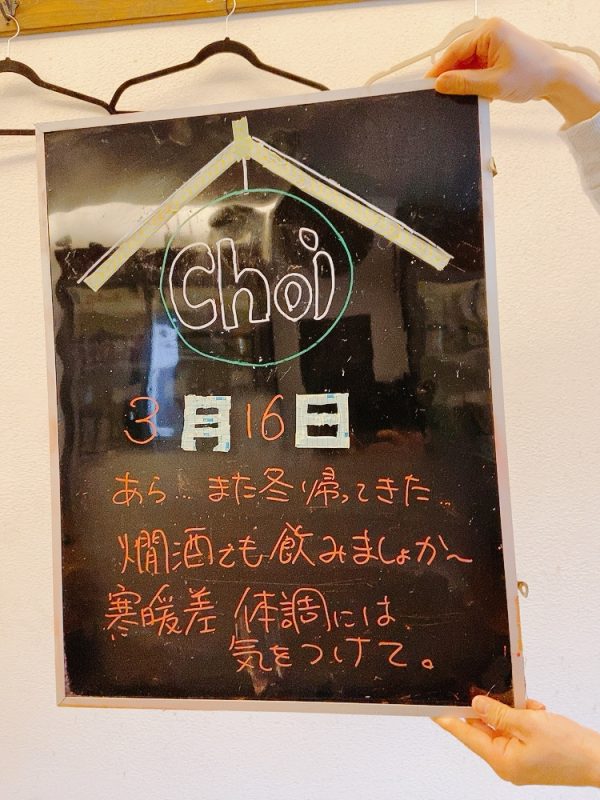 Choi
3月16日
あら… また冬帰ってきた…
燗酒でも飲みましょか〜
寒暖差 体調には
気をつけて。